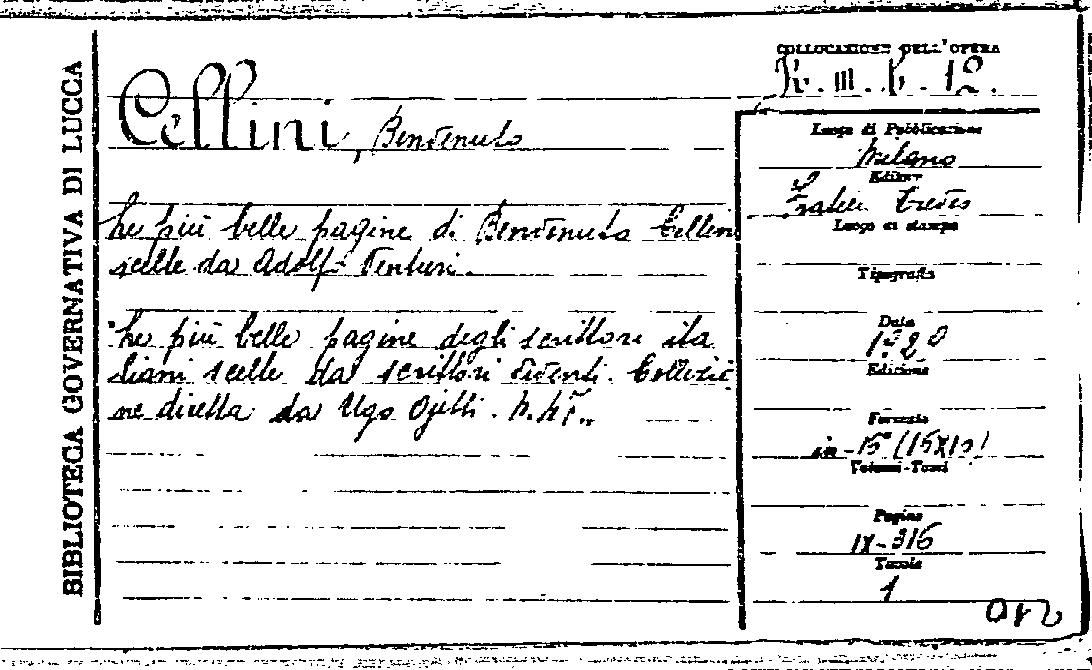 BIBLIOTECA GOVERNATIVA DI LUCCA
COLLOCAZIONE DELL'OPERA
Cellini, Benvenuto
Le più belle pagine di Benvenuto Cellini
scelte da Adolfo Venturi.
"Le più belle pagine degli scrittori ita
liani scelte da scrittori viventi. Collezio
ne diretta da Ugo Ojetti.
Luogo di Pubblicazione
Milano
Editore
Fratelli Treves
Luogo di stampa
Tipografia
Data
1920
Edizione
Formato
Volumi-Tomi
Pagine
IX-316
Tavole
1